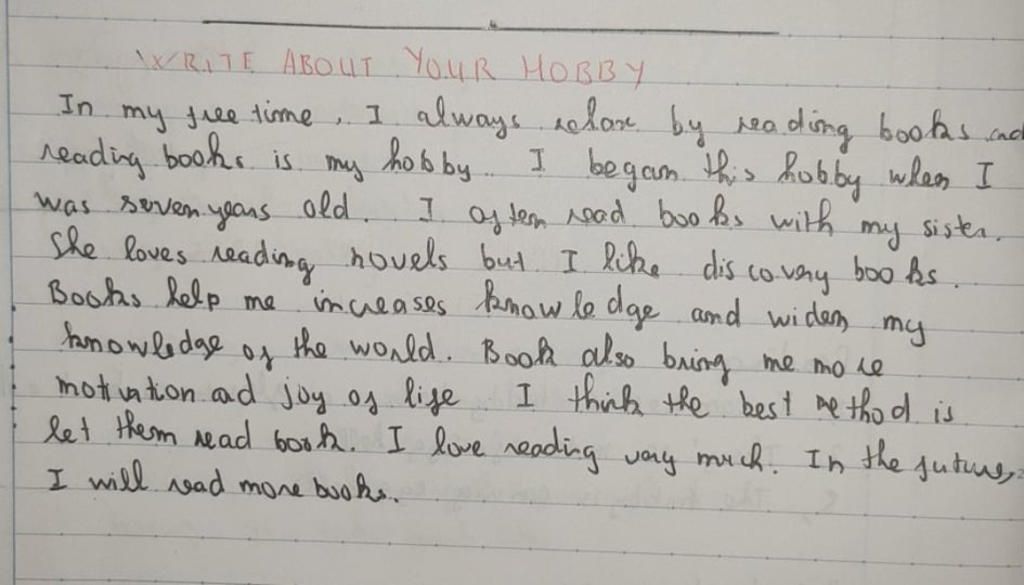 WRITE ABOUT YOUR HOBBY
In my free time, I always relax by reading books and
reading books is my hobby. I began this hobby when I
was seven years old. I often read books with my sister.
She loves reading novels but I like discovery books.
Books help me increases knowledge and widen my
knowledge of the world. Book also bring me more
motivation and joy of life I think the best method is
let them read book. I love reading very much. In the future,
I will read more books.